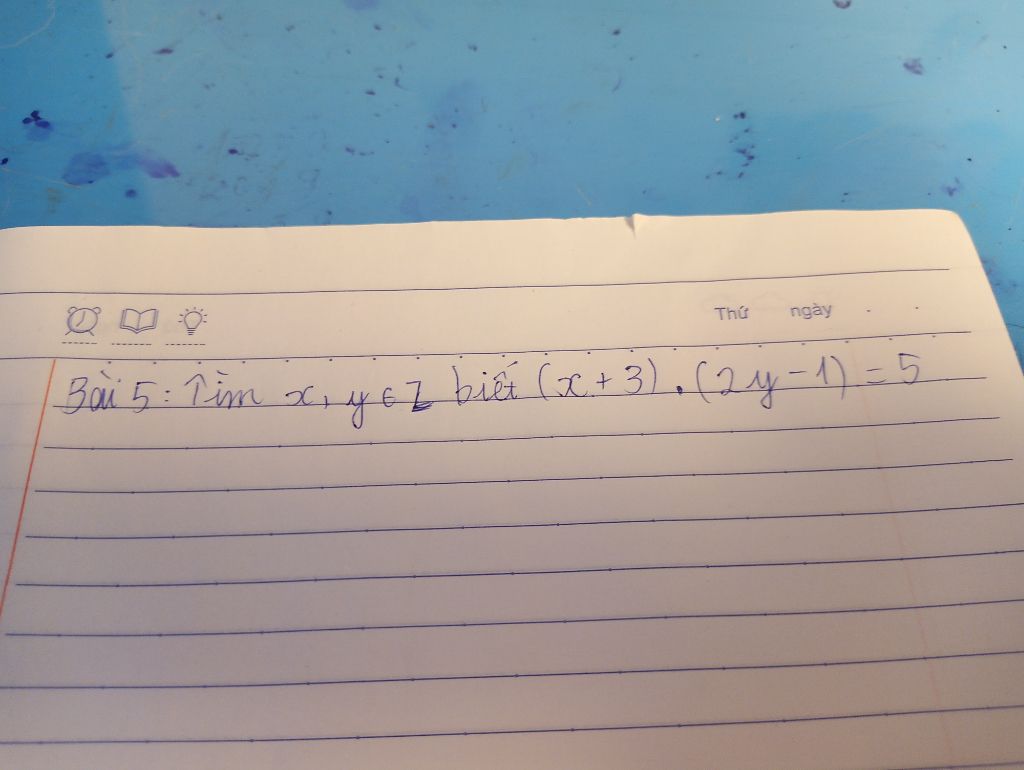 Thứ ngày
Bài 5: Tìm x, y ∈ Z biết (x + 3) . (2y - 1) = 5